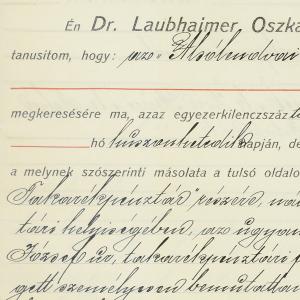 Én Dr. Laubhaimer Oszka
tanusitom, hogy: az „Alsólendvai
megkeresésére ma, azaz egyezerkilenczszáz
hó huszonhetedik napján, de
a melynek szószerinti másolata a tulsó oldalo
Takarékpénztár" részére, na
tári helyiségében, az ugyan
József ur, takarékpénztári
gett személyesen bemutatta